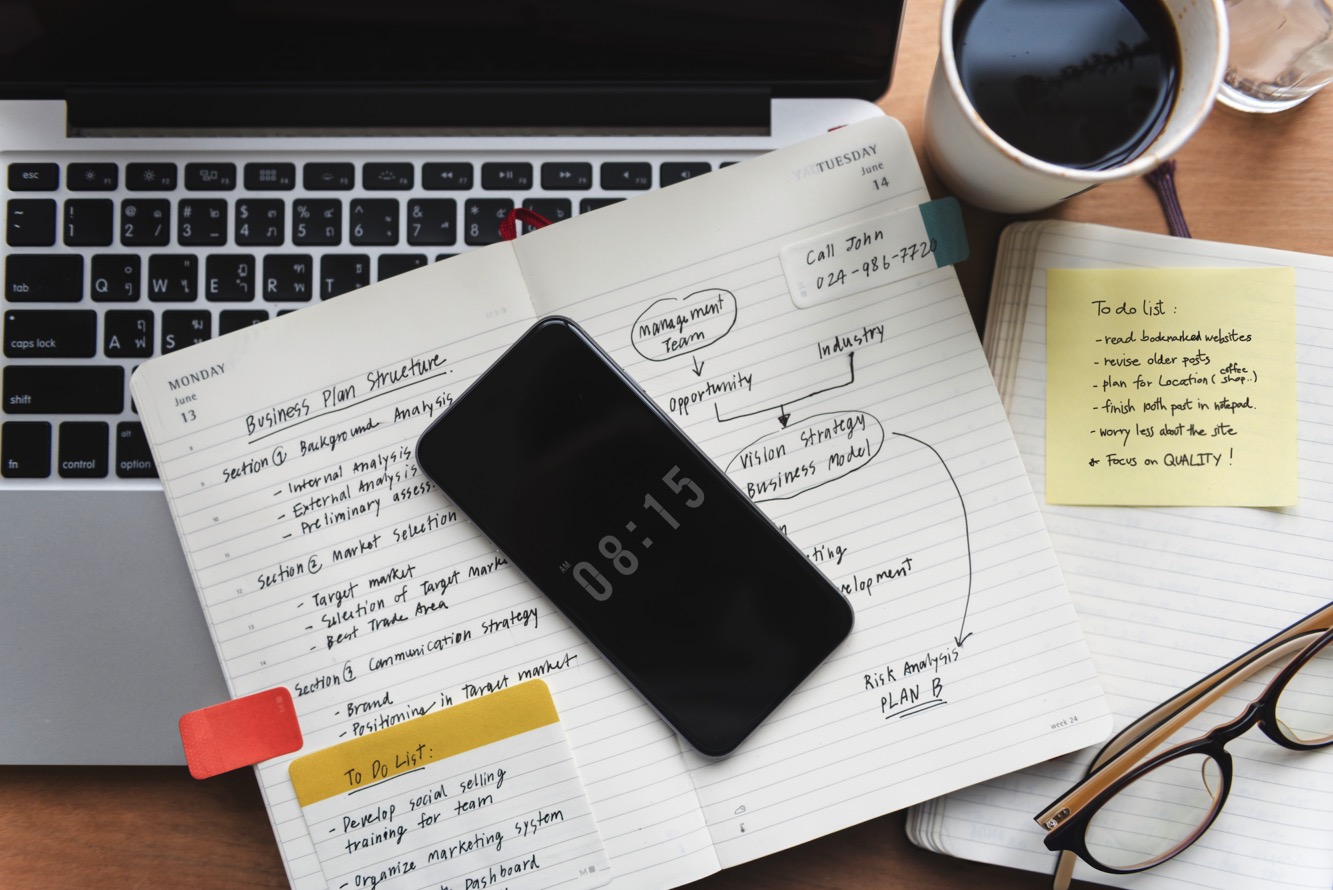 esc
F1
F2
F3
F4
F5
F6
F7
F8
F9
F10
~
!
1
@ ๑
2 /
# ๒
3 -
$ ๓
4 ภ
% ๔
5 ถ
^
6
&
7
*
8
tab
Q
W
E
R
T
caps lock
A ฟ
S
shift
fn
control
alt
option
MONDAY
June
13
Business Plan Structure.
Section ① Background Analysis
- Internal Analysis
- External Analysis
- Preliminary
Section ② Market Selection
- Target market
- Selection of Target
- Best Trade Area
Section ③ Communication Strategy
- Brand
- Positioning in Target market
9
10
11
12
13
14
To Do List:
- Develop social selling
training for team
- Organize marketing system
Dashboard
AM
08:15
TUESDAY
June
14
Call John
024-986-7720
Management
Team
Industry
Opportunity
Vision Strategy
Business Model
Risk Analysis
PLAN B
week 24
To do list :
- read bookmarked websites
- revise older posts
- plan for Location ( coffee shop.. )
- finish 100th post in notepad.
- worry less about the site
* Focus on QUALITY !